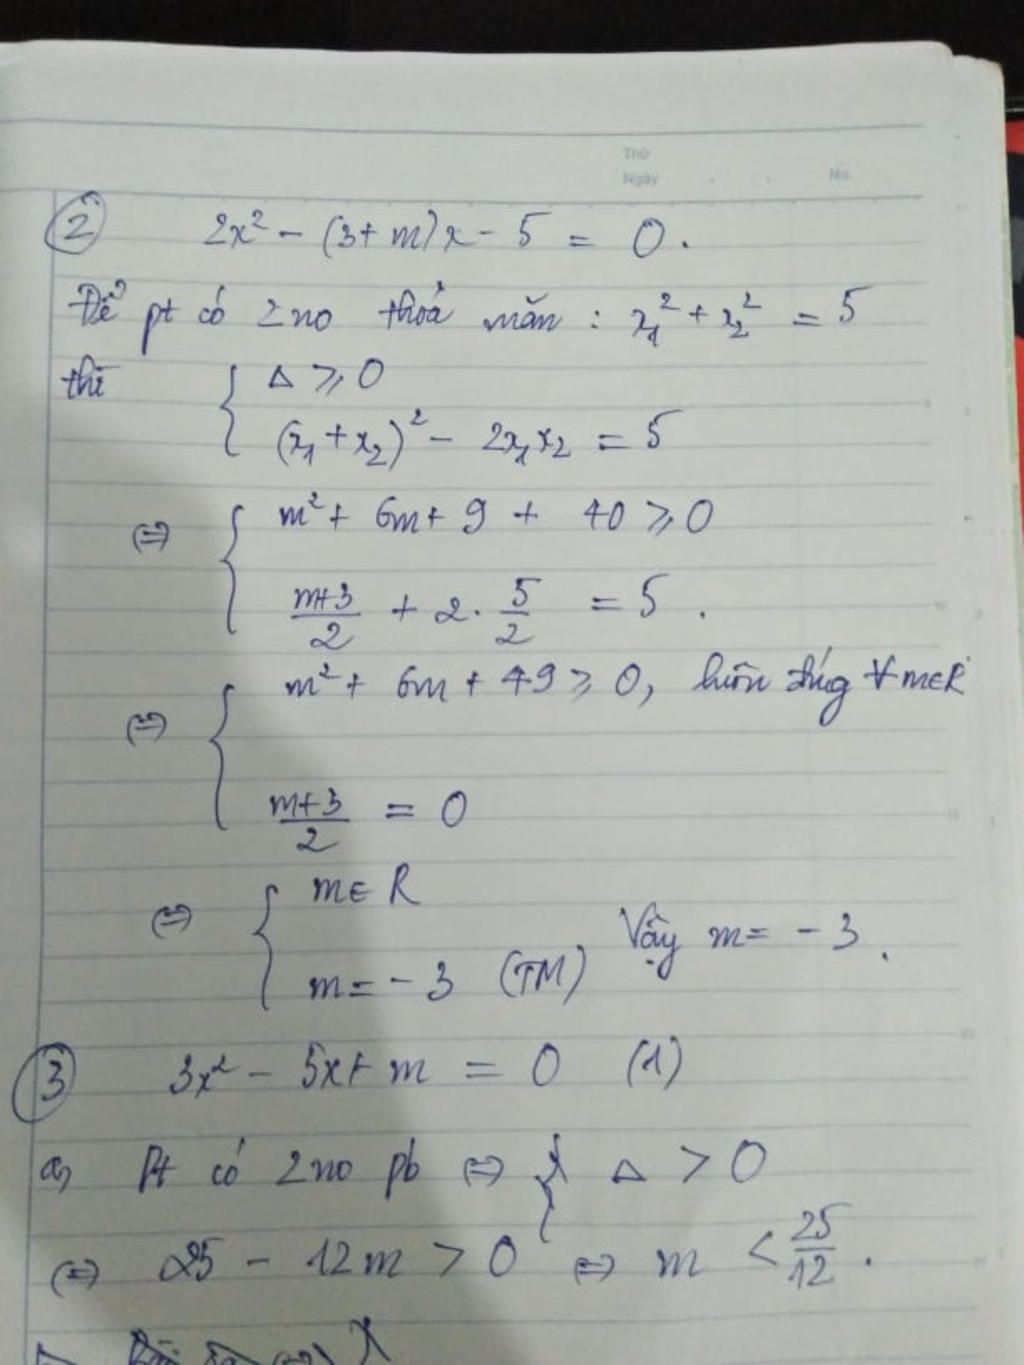 Thứ
Ngày No.
② 2x² - (3+m)x - 5 = 0.
Để pt có 2 no thoả mãn : x₁² + x₂² = 5
thì { Δ ⩾ 0
(x₁ + x₂)² - 2x₁x₂ = 5
⇔ { m² + 6m + 9 + 40 ⩾ 0
(m+3)/2 + 2. 5/2 = 5.
⇔ { m² + 6m + 49 ⩾ 0, luôn đúng ∀ m∈R
(m+3)/2 = 0
⇔ { m ∈ R
m = -3 (TM) Vậy m = -3.
③ 3x² - 5x + m = 0 (1)
a, Pt có 2 no pb ⇔ { Δ > 0
⇔ 25 - 12m > 0 ⇔ m < 25/12.